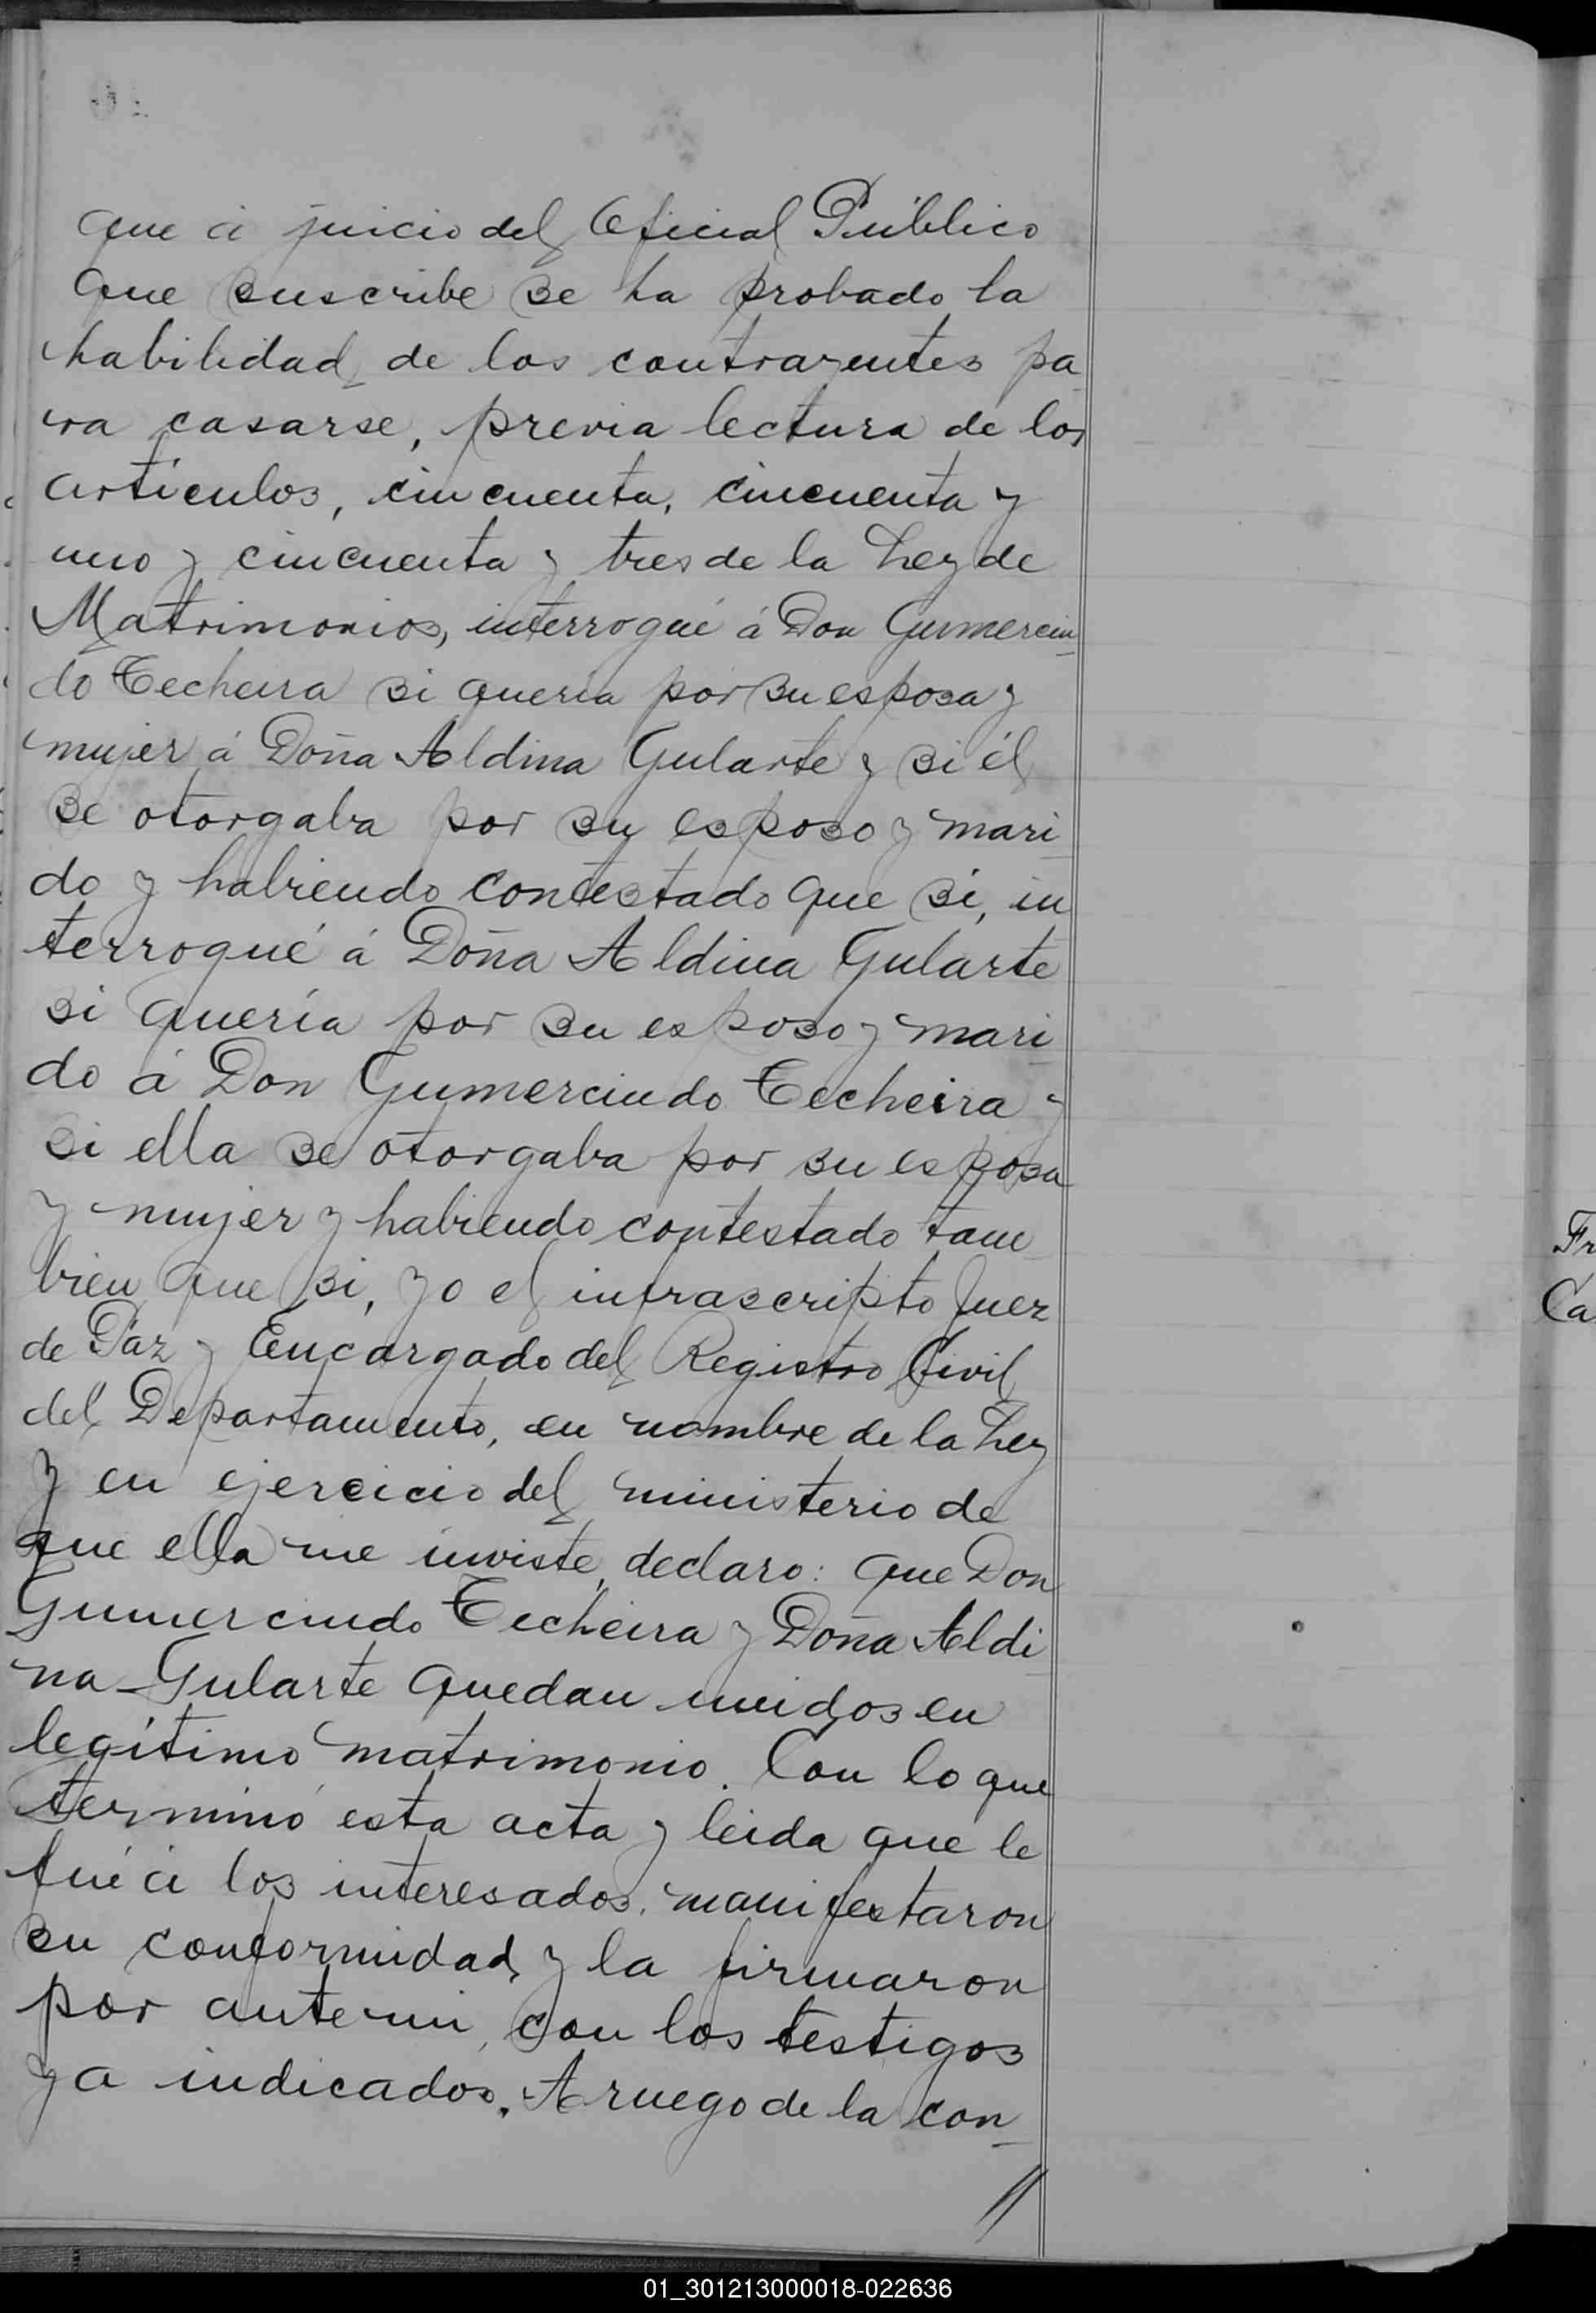 que á juicio del Oficial Público
que suscribe se ha probado la
habilidad de los contrayentes pa
ra casarse, previa lectura de los
artículos, cincuenta, cincuenta y
uno y cincuenta y tres de la Ley de
Matrimonios, interrogué á Don Gumercin
do Techeira si quería por su esposa y
mujer á Doña Aldina Gularte y si él
se otorgaba por su esposo y mari
do y habiendo contestado que si, in
terrogué á Doña Aldina Gularte
si quería por su esposo y mari
do á Don Gumercindo Techeira y
si ella se otorgaba por su esposa
y mujer y habiendo contestado tam
bien que si, yo el infrascripto Juez
de Paz y Encargado del Registro Civil
del Departamento, en nombre de la Ley
y en ejercicio del ministerio de
que ella me inviste, declaro: que Don
Gumercindo Techeira y Doña Aldi
na Gularte quedan unidos en
legítimo matrimonio. Con lo que
terminó esta acta y leida que le
fué á los interesados, manifestaron
su conformidad y la firmaron
por ante mi, con los testigos
ya indicados. A ruego de la con
Fr
Ca
01_301213000018-022636